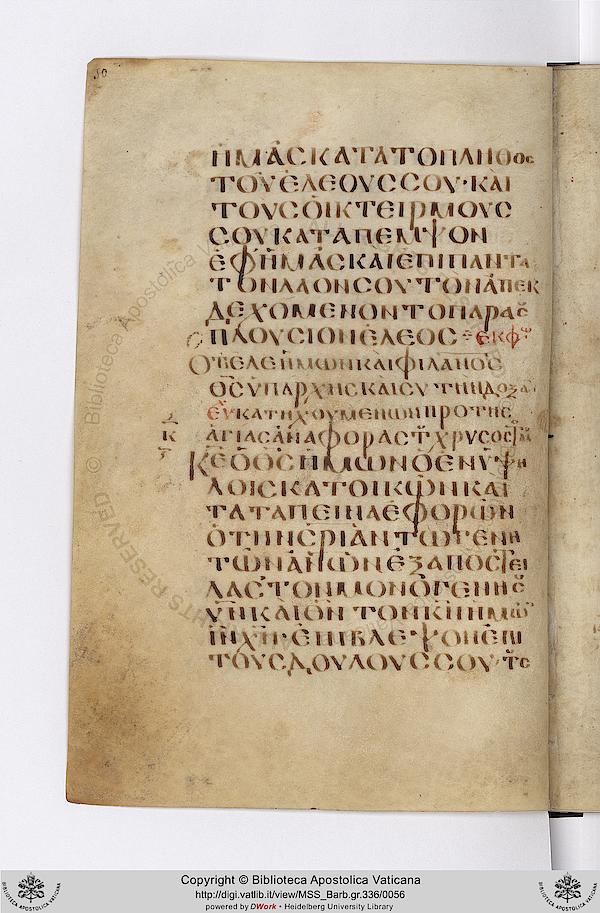 ΗΜΑΣ ΚΑΤΑ ΤΟ ΠΛΗΘΟΣ
ΤΟΥ ΕΛΕΟΥΣ ΣΟΥ· ΚΑΙ
ΤΟΥΣ ΟΙΚΤΕΙΡΜΟΥΣ
ΣΟΥ ΚΑΤΑΠΕΜΨΟΝ
ΕΦ ΗΜΑΣ ΚΑΙ ΕΠΙ ΠΑΝΤΑ
ΤΟΝ ΛΑΟΝ ΣΟΥ ΤΟΝ ΑΠΕΚ
ΔΕΧΟΜΕΝΟΝ ΤΟ ΠΑΡΑ Σ
ΠΛΟΥΣΙΟΝ ΕΛΕΟΣ ΕΚΦ
ΟΤΙ ΕΛΕΗΜΩΝ ΚΑΙ ΦΙΛΑΝΟΣ
ΘΣ ΥΠΑΡΧΗΣ ΚΑΙ ΣΥ ΤΗΝ ΔΟΞΑ
ΕΥ ΚΑΤΗΧΟΥΜΕΝΩΝ ΠΡΟ ΤΗΣ
ΑΓΙΑΣ ΑΝΑΦΟΡΑΣ Τ ΧΡΥΣΟΣΤΜ
ΚΕ Ο ΘΣ ΗΜΩΝ Ο ΕΝ ΥΨΗ
ΛΟΙΣ ΚΑΤΟΙΚΩΝ ΚΑΙ
ΤΑ ΤΑΠΕΙΝΑ ΕΦΟΡΩΝ
Ο ΤΗΝ ΣΡΙΑΝ ΤΩ ΓΕΝΗ
ΤΩΝ ΑΝΩΝ ΕΞΑΠΟΣΤΕΙ
ΛΑΣ ΤΟΝ ΜΟΝΟΓΕΝΗ Σ
ΥΝ ΚΑΙ ΘΝ ΤΟΝ ΚΝ ΗΜΩ
ΙΝ ΧΝ· ΕΠΙΒΛΕΨΟΝ ΕΠΙ
ΤΟΥΣ ΔΟΥΛΟΥΣ ΣΟΥ· ΤΣ
Copyright © Biblioteca Apostolica Vaticana
http://digi.vatlib.it/view/MSS_Barb.gr.336/0056
powered by DWork • Heidelberg University Library